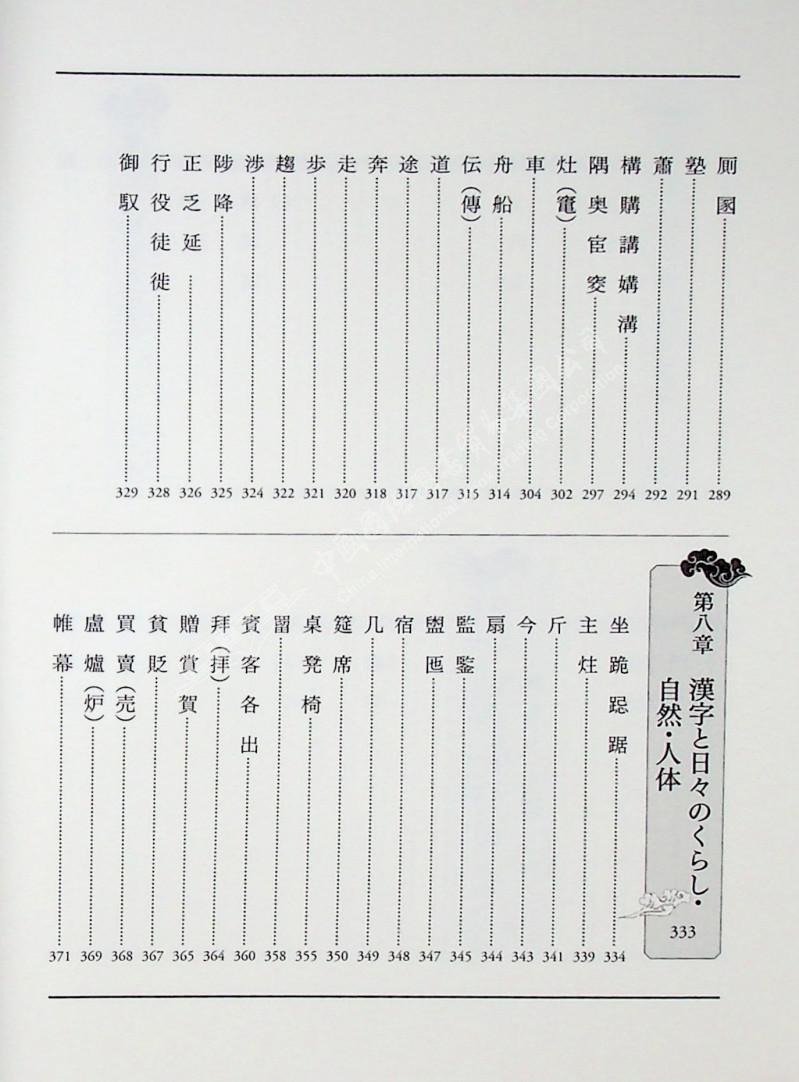 厠圂 289
塾 291
蕭 292
構購講媾溝 294
隅奥宦窔 297
灶(竃) 302
車 304
舟船 314
伝(傳) 315
道 317
途 317
奔 318
走 320
歩 321
趨 322
渉 324
陟降 325
正乏延 326
行役徒徙 328
御馭 329
第八章 漢字と日々のくらし・
自然・人体 333
坐跪跽踞 334
主炷 339
斤 341
今 343
扇 344
監鍳 345
盥匜 347
宿 348
几 349
筵席 350
桌凳椅 355
畱 358
賓客各出 360
拜(拝) 364
贈賞賀 365
貧貶 367
買賣(売) 368
盧爐(炉) 369
帷幕 371
中國圖書貿易集團公司
China International Book Trading Corporation